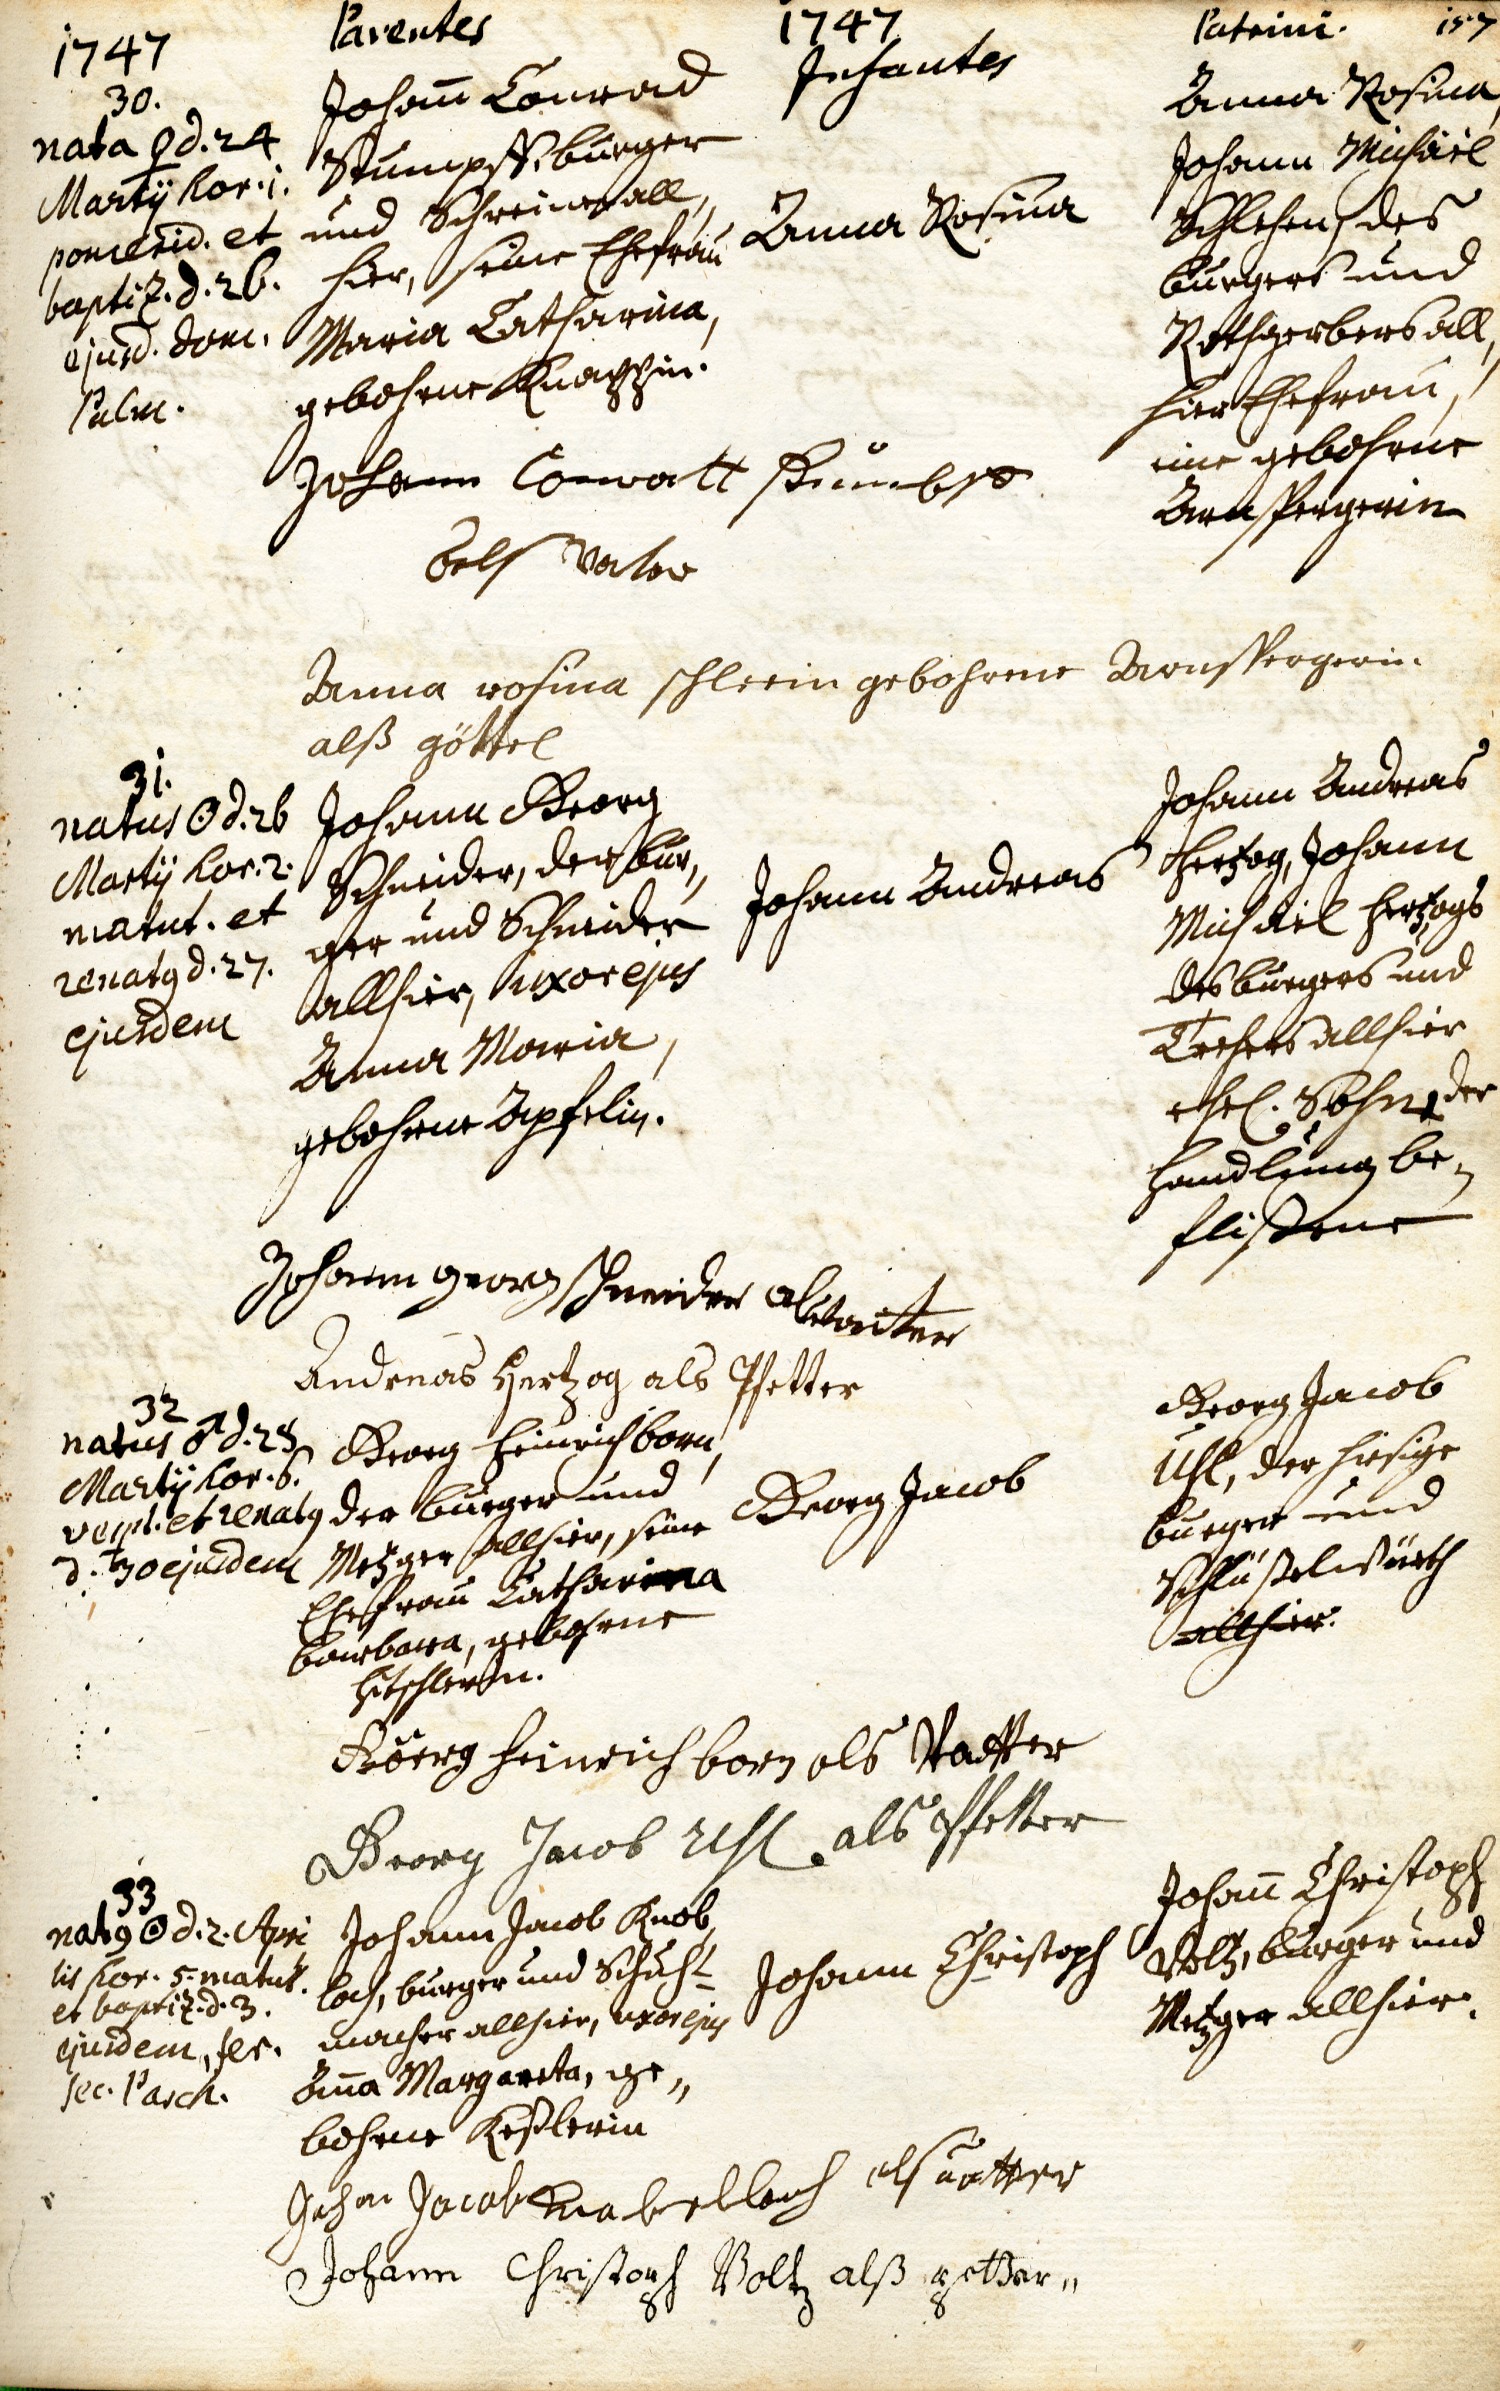 1747 Parentes 1747 Infantes Patrini. 157
30.
nata ♀ d. 24
Martij hor. 1.
pomerid. et
baptiz. d. 26.
ejusd. Dom.
Palm.
Johañ Conrad
Stumpff, burger
und Schreiner all„
hier, seine Ehefrau
Maria Catharina,
gebohrne
Anna Rosina
Anna Rosina,
Johann Michäel
Schlehen, des
burgers und
Rothgerbers all„
hier Ehefrau,
eine gebohrne
Arnspergerin
Johann Conratt
Vater
Anna rosina schleein gebohrene Arnspergerin
alß göttel
31.
natus ☉ d. 26
Martij hor. 2.
matut. et
renatq d. 27.
ejusdem
Johann Georg
Schneider, der bur„
ger und Schneider
allhier, uxor ejus
Anna Maria,
gebohrne Apfelin.
Johann Andreas
Johann Andreas
Hertzog, Johann
Michäel Hertzogs
des burgers und
allhier
ehel. Sohn, der
Handlung be„
flißene
Johann georg schneider als vatter
Andreas Hertzog als Pfetter
32
natus ♂ d. 28
Martij hor. 6.
vesp. et renatq
d. 30 ejusdem
Georg Heinrich born,
der burger und
Metzger allhier, seine
Ehefrau Catharina
barbara, gebohrne
Hitschlerin.
Georg Jacob
Georg Jacob
Uhl, der hiesige
burger und
Schlüßelwürth
allhier.
Göerg Heinrich born als Vatter
Georg Jacob Uhl als Pfetter
33
natq ☉ d. 2. Apri
lis hor. 5. matut.
et baptiz. d. 3.
ejusdem, fer.
sec. Pasch.
Johann Jacob Knob„
loch, burger und Schuh-
macher allhier, uxor ejus
Aña Margareta, ge„
bohrne Keßlerin
Johann Christoph
Johañ Christoph
Voltz, burger und
Metzger allhier.
Johan Jacob Knabellauch als vatter
Johann Christoph Voltz alß petter„